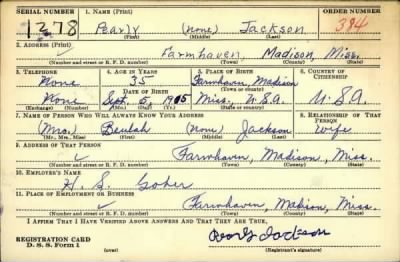 SERIAL NUMBER 1. NAME (Print) ORDER NUMBER
1278 Pearly (none) Jackson 394
(First) (Middle) (Last)
2. ADDRESS (Print)
Farmhaven, Madison, Miss.
(Number and street or R. F. D. number) (Town) (County) (State)
3. TELEPHONE 4. AGE IN YEARS 5. PLACE OF BIRTH 6. COUNTRY OF CITIZENSHIP
None 35 Farmhaven, Madison
DATE OF BIRTH (Town or county)
None Sept. 5, 1905 Miss. U.S.A. U.S.A.
(Exchange) (Number) (Mo.) (Day) (Yr.) (State or country)
7. NAME OF PERSON WHO WILL ALWAYS KNOW YOUR ADDRESS 8. RELATIONSHIP OF THAT PERSON
(Mrs.) Beulah (None) Jackson Wife
(Mr., Mrs., Miss) (First) (Middle) (Last)
9. ADDRESS OF THAT PERSON
Farmhaven, Madison, Miss.
(Number and street or R. F. D. number) (Town) (County) (State)
10. EMPLOYER'S NAME
H. S.
11. PLACE OF EMPLOYMENT OR BUSINESS
Farmhaven, Madison, Miss.
(Number and street or R. F. D. number) (Town) (County) (State)
I AFFIRM THAT I HAVE VERIFIED ABOVE ANSWERS AND THAT THEY ARE TRUE.
REGISTRATION CARD
D. S. S. Form 1 (over) Pearly Jackson
(Registrant's signature)